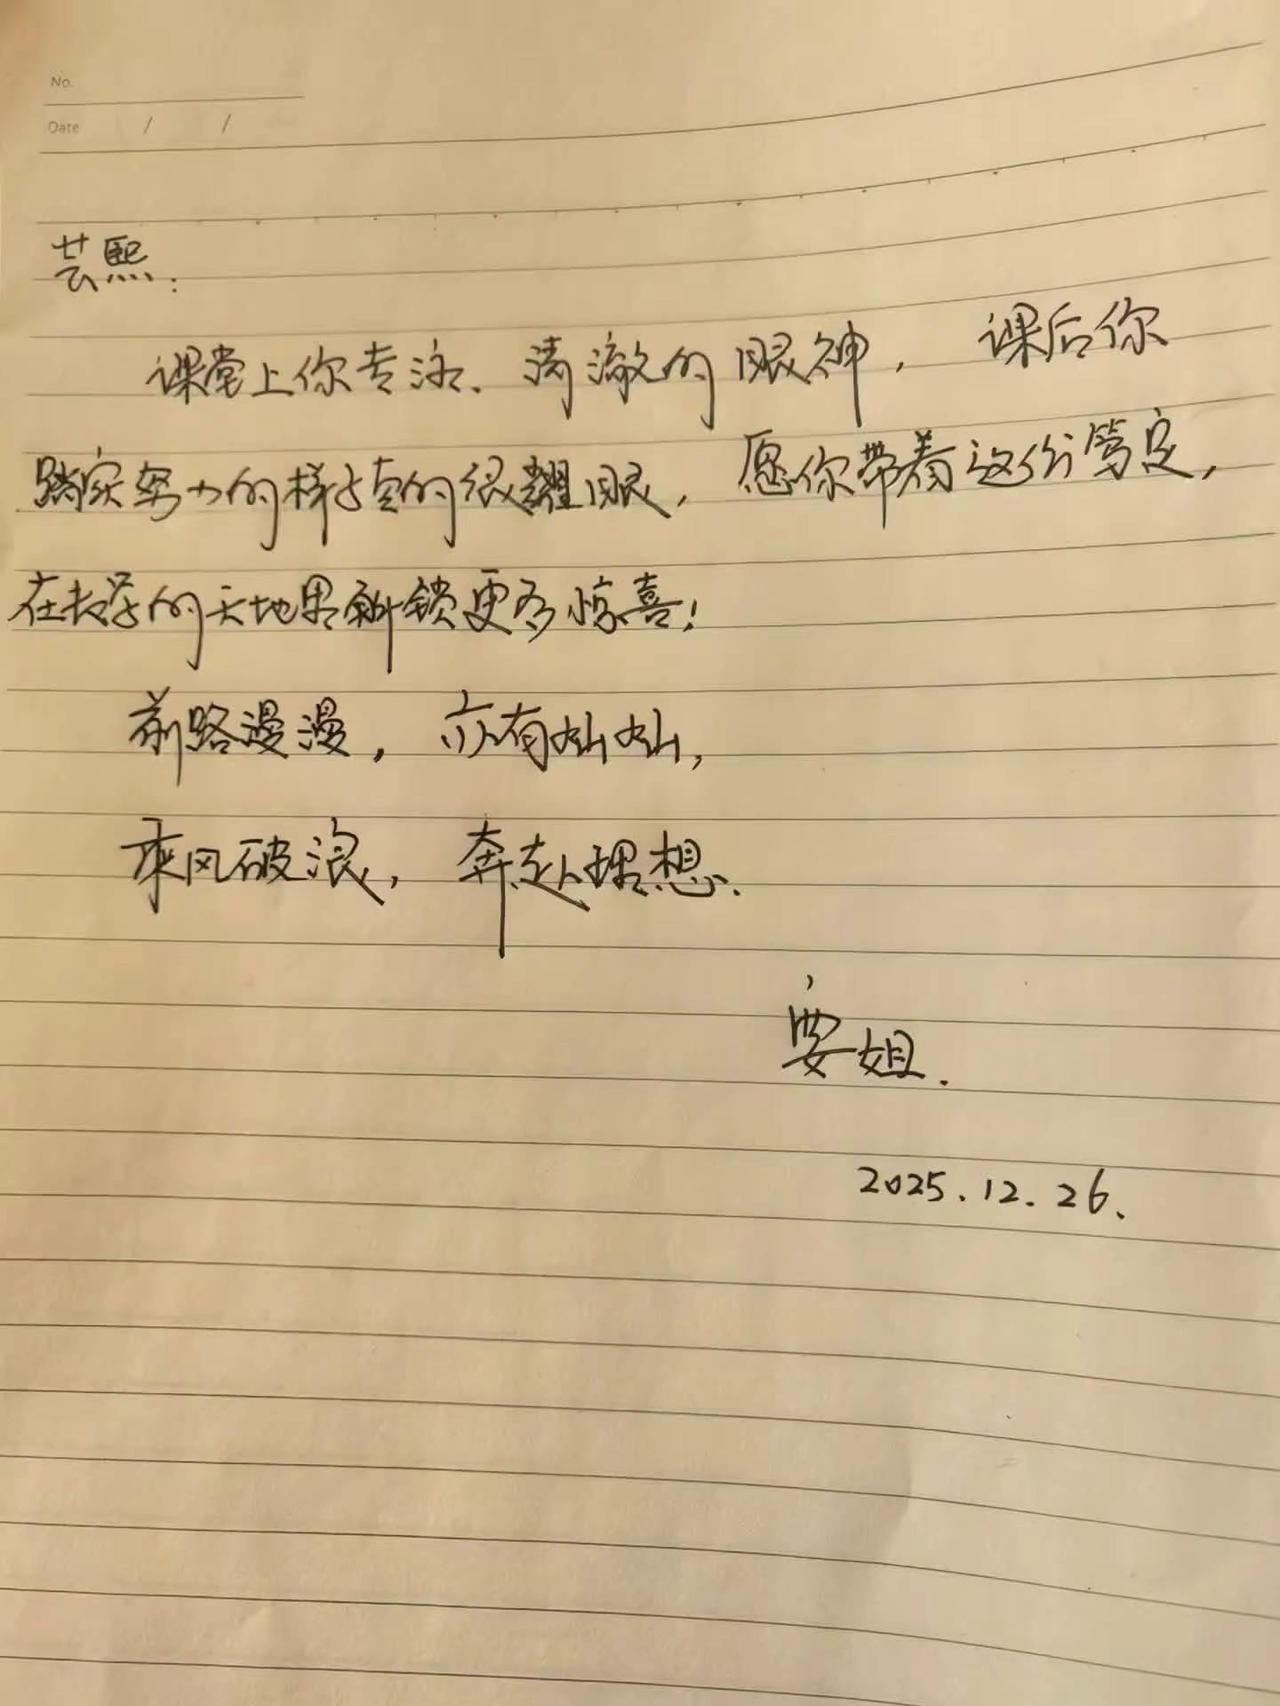 No.
Date / /
芸熙：
课堂上你专注、清澈的眼神，课后你
踏实努力的样子真的很耀眼，愿你带着这份笃定，
在数学的天地里解锁更多惊喜！
前路漫漫，亦有灿灿，
乘风破浪，奔赴理想.
姐.
2025.12.26.